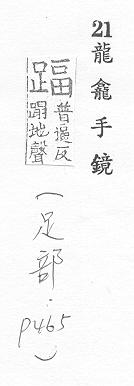 21 龍龕手鏡
踾 普逼反
蹋地聲
(足部.
p465)